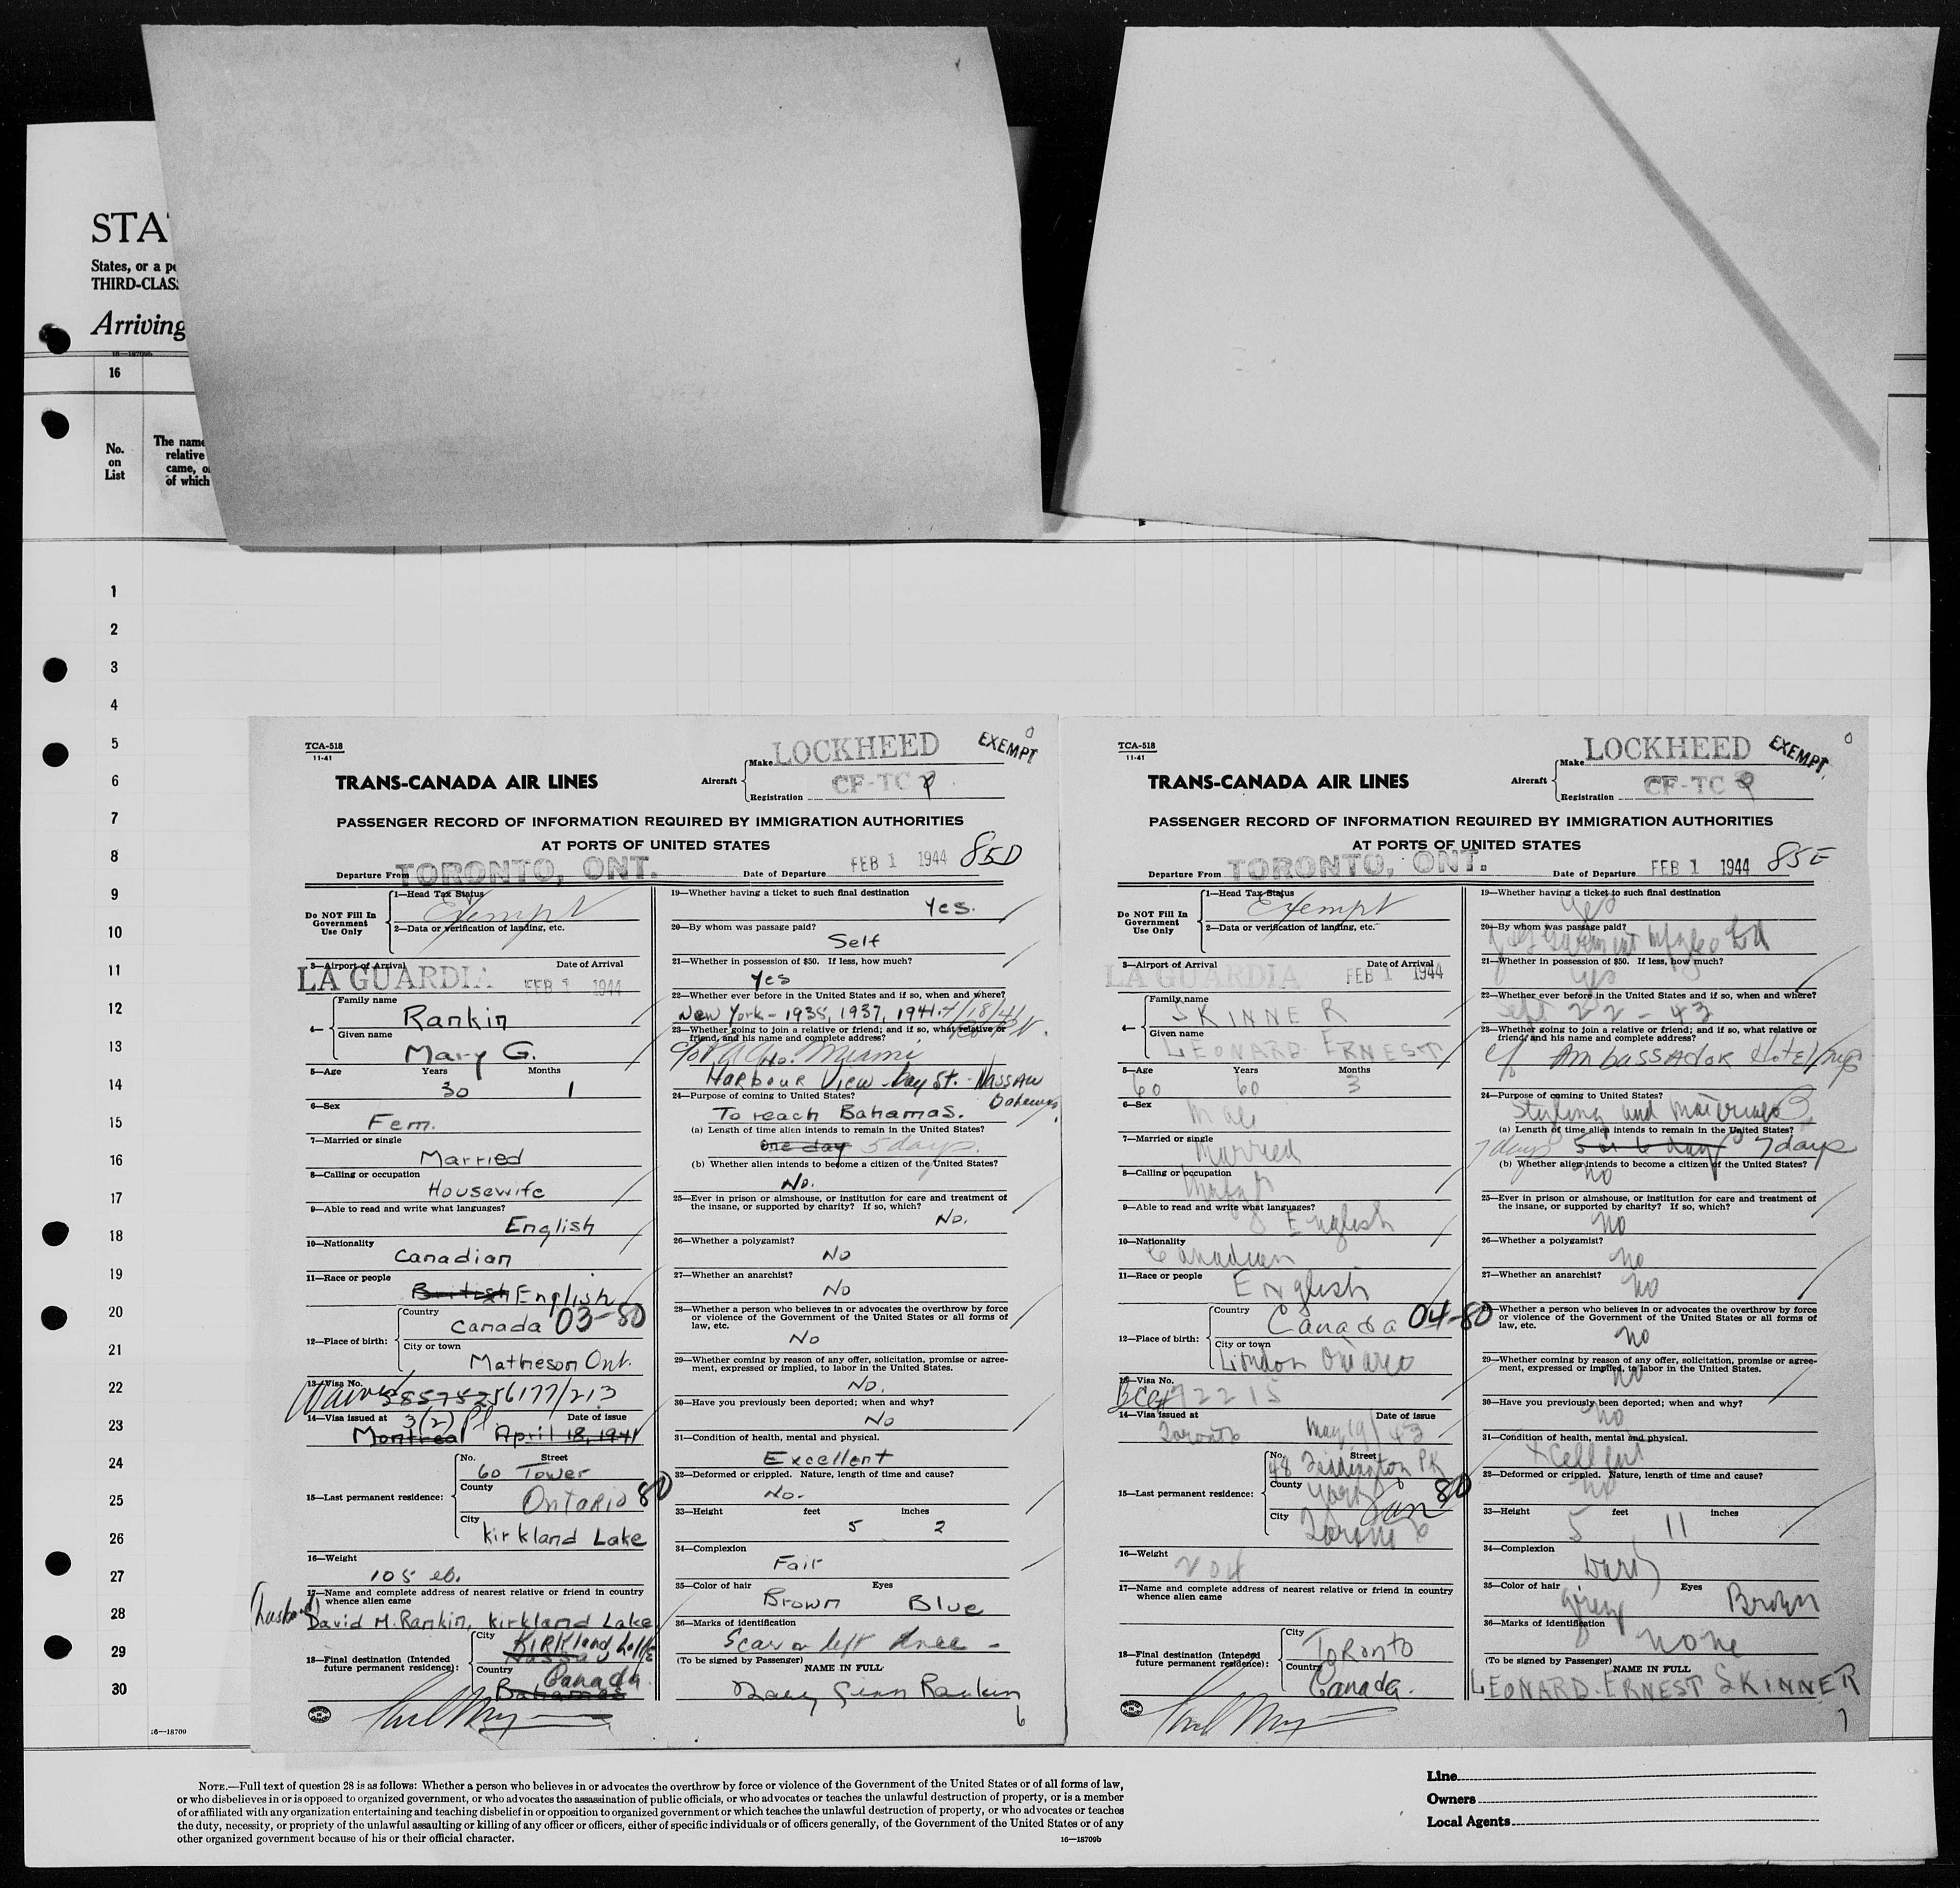 STA
States, or a pe
THIRD-CLAS
Arriving
16—18709b
16
No.
on
List
The name
relative
came, o
of which
1
2
3
4
5
6
7
8
9
10
11
12
13
14
15
16
17
18
19
20
21
22
23
24
25
26
27
28
29
30
16—18709
TCA-518
11-41
LOCKHEED
EXEMPT
TRANS-CANADA AIR LINES
Aircraft
Make
CF-TC
Registration
PASSENGER RECORD OF INFORMATION REQUIRED BY IMMIGRATION AUTHORITIES
AT PORTS OF UNITED STATES
85D
Departure From TORONTO, ONT.
Date of Departure FEB 1 1944
Do NOT Fill In
Government
Use Only
1—Head Tax Status
Exempt
2—Data or verification of landing, etc.
3—Airport of Arrival Date of Arrival
LA GUARDIA FEB 1 1944
4—
Family name
Rankin
Given name
Mary G.
5—Age Years Months
30 1
6—Sex
Fem.
7—Married or single
Married
8—Calling or occupation
Housewife
9—Able to read and write what languages?
English
10—Nationality
Canadian
11—Race or people
British English
12—Place of birth:
Country
Canada 03-80
City or town
Matheson Ont.
13—Visa No.
56177/213
14—Visa issued at Date of issue
3(2)
Montreal April 18, 1941
15—Last permanent residence:
No. Street
60 Tower
County
Ontario 80
City
Kirkland Lake
16—Weight
105 lb.
17—Name and complete address of nearest relative or friend in country
whence alien came
(husband)
David M. Rankin, Kirkland Lake
18—Final destination (Intended
future permanent residence):
City
Kirkland Lake
Nassau
Country
Canada
Bahamas
19—Whether having a ticket to such final destination
Yes.
20—By whom was passage paid?
Self
21—Whether in possession of $50. If less, how much?
Yes
22—Whether ever before in the United States and if so, when and where?
New York - 1935, 1937, 1941. 4/18/41
23—Whether going to join a relative or friend; and if so, what relative or
friend, and his name and complete address?
Miami
Harbour View - Bay St. - Nassau
Bahamas
24—Purpose of coming to United States?
To reach Bahamas.
(a) Length of time alien intends to remain in the United States?
One day 5 days.
(b) Whether alien intends to become a citizen of the United States?
No.
25—Ever in prison or almshouse, or institution for care and treatment of
the insane, or supported by charity? If so, which?
No.
26—Whether a polygamist?
No
27—Whether an anarchist?
No
28—Whether a person who believes in or advocates the overthrow by force
or violence of the Government of the United States or all forms of
law, etc.
No
29—Whether coming by reason of any offer, solicitation, promise or agree-
ment, expressed or implied, to labor in the United States.
No.
30—Have you previously been deported; when and why?
No
31—Condition of health, mental and physical.
Excellent
32—Deformed or crippled. Nature, length of time and cause?
No.
33—Height feet inches
5 2
34—Complexion
Fair
35—Color of hair Eyes
Brown Blue
36—Marks of identification
Scar on left knee -
(To be signed by Passenger)
NAME IN FULL
Mary Rankin
6
TCA-518
11-41
LOCKHEED
EXEMPT.
TRANS-CANADA AIR LINES
Aircraft
Make
CF-TC
Registration
PASSENGER RECORD OF INFORMATION REQUIRED BY IMMIGRATION AUTHORITIES
AT PORTS OF UNITED STATES
85E
Departure From TORONTO, ONT.
Date of Departure FEB 1 1944
Do NOT Fill In
Government
Use Only
1—Head Tax Status
Exempt
2—Data or verification of landing, etc.
3—Airport of Arrival Date of Arrival
LA GUARDIA FEB 1 1944
4—
Family name
SKINNER
Given name
LEONARD ERNEST
5—Age Years Months
60 60 3
6—Sex
Male
7—Married or single
Married
8—Calling or occupation
9—Able to read and write what languages?
English
10—Nationality
Canadian
11—Race or people
English
12—Place of birth:
Country
Canada 04-80
City or town
London Ontario
13—Visa No.
72215
14—Visa issued at Date of issue
Toronto May 19/43
15—Last permanent residence:
No. Street
48 PK
County
York 80
City
Toronto
16—Weight
204
17—Name and complete address of nearest relative or friend in country
whence alien came
18—Final destination (Intended
future permanent residence):
City
Toronto
Country
Canada.
19—Whether having a ticket to such final destination
yes
20—By whom was passage paid?
Ltd
21—Whether in possession of $50. If less, how much?
yes
22—Whether ever before in the United States and if so, when and where?
Sept 22 - 43
23—Whether going to join a relative or friend; and if so, what relative or
friend, and his name and complete address?
Ambassador Hotel
24—Purpose of coming to United States?
Styling and materials
(a) Length of time alien intends to remain in the United States?
7 days 5 or 6 days 7 days
(b) Whether alien intends to become a citizen of the United States?
no
25—Ever in prison or almshouse, or institution for care and treatment of
the insane, or supported by charity? If so, which?
no
26—Whether a polygamist?
no
27—Whether an anarchist?
no
28—Whether a person who believes in or advocates the overthrow by force
or violence of the Government of the United States or all forms of
law, etc.
no
29—Whether coming by reason of any offer, solicitation, promise or agree-
ment, expressed or implied, to labor in the United States.
no
30—Have you previously been deported; when and why?
no
31—Condition of health, mental and physical.
32—Deformed or crippled. Nature, length of time and cause?
no
33—Height feet inches
5 11
34—Complexion
Dark
35—Color of hair Eyes
Grey Brown
36—Marks of identification
none
(To be signed by Passenger)
NAME IN FULL
LEONARD ERNEST SKINNER
7
NOTE.—Full text of question 28 is as follows: Whether a person who believes in or advocates the overthrow by force or violence of the Government of the United States or of all forms of law,
or who disbelieves in or is opposed to organized government, or who advocates the assassination of public officials, or who advocates or teaches the unlawful destruction of property, or is a member
of or affiliated with any organization entertaining and teaching disbelief in or opposition to organized government or which teaches the unlawful destruction of property, or who advocates or teaches
the duty, necessity, or propriety of the unlawful assaulting or killing of any officer or officers, either of specific individuals or of officers generally, of the Government of the United States or of any
other organized government because of his or their official character.
16—18709b
Line
Owners
Local Agents